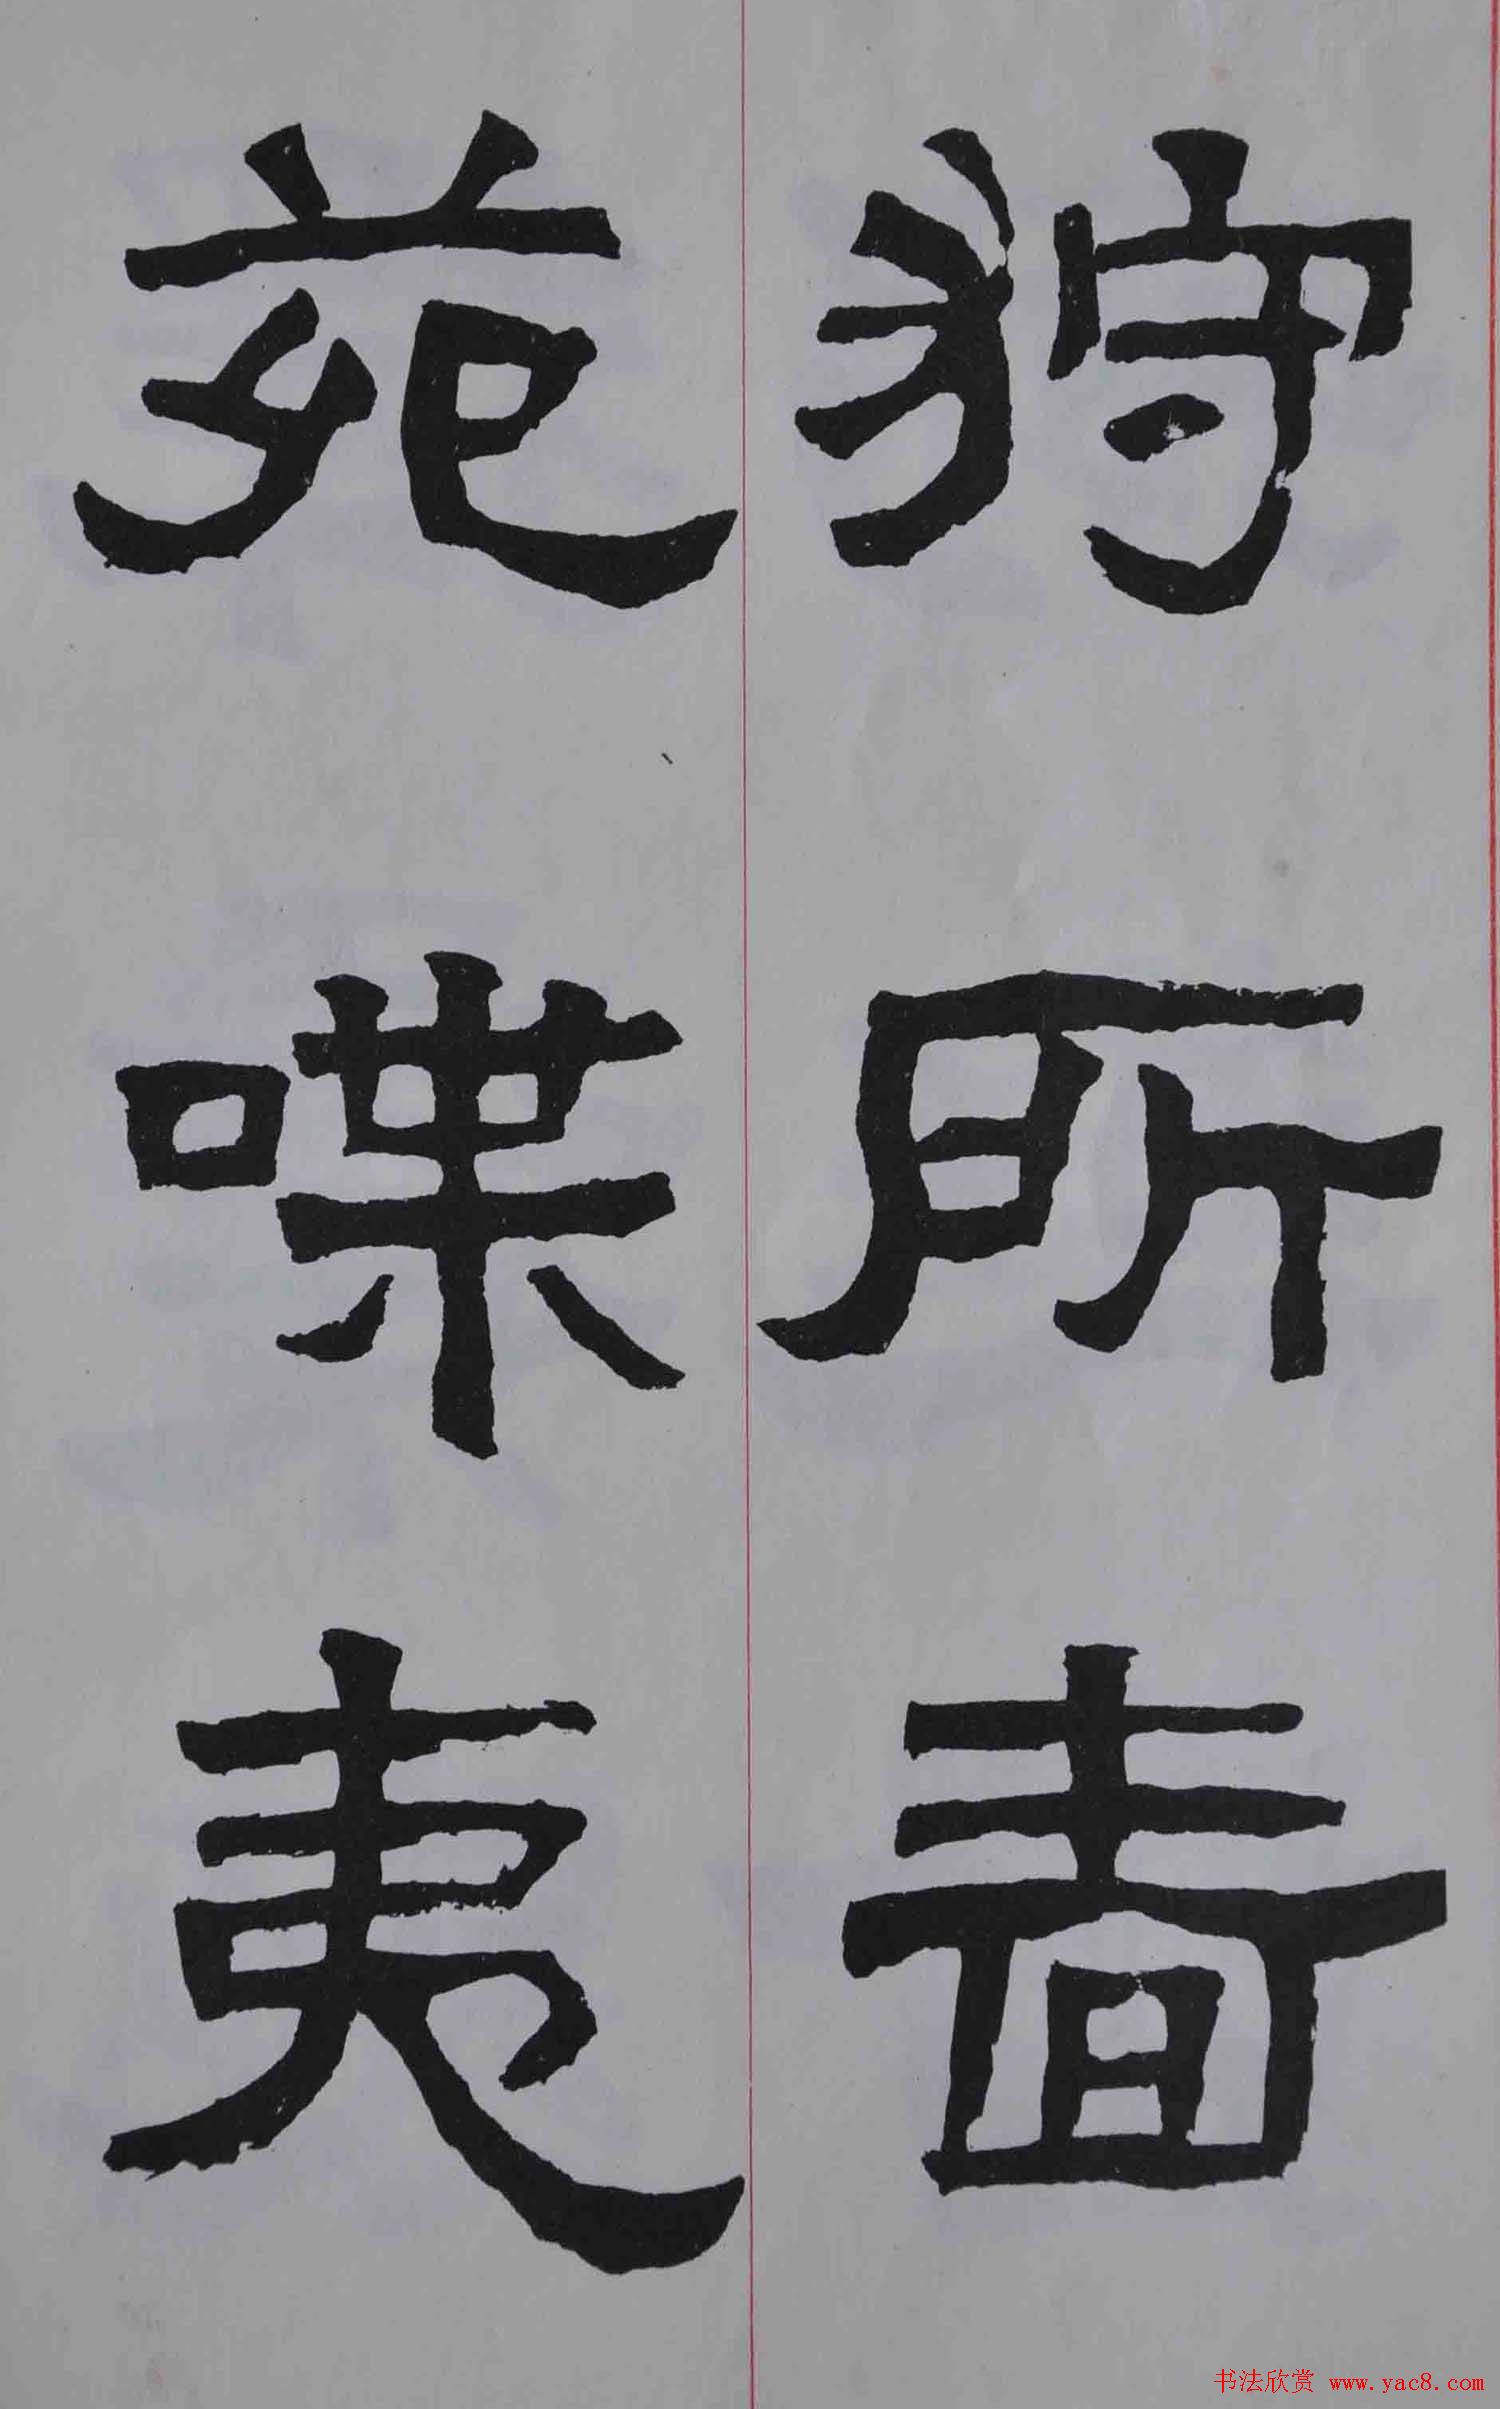 狩所嗇
苑喋夷
书法欣赏 www.yac8.com